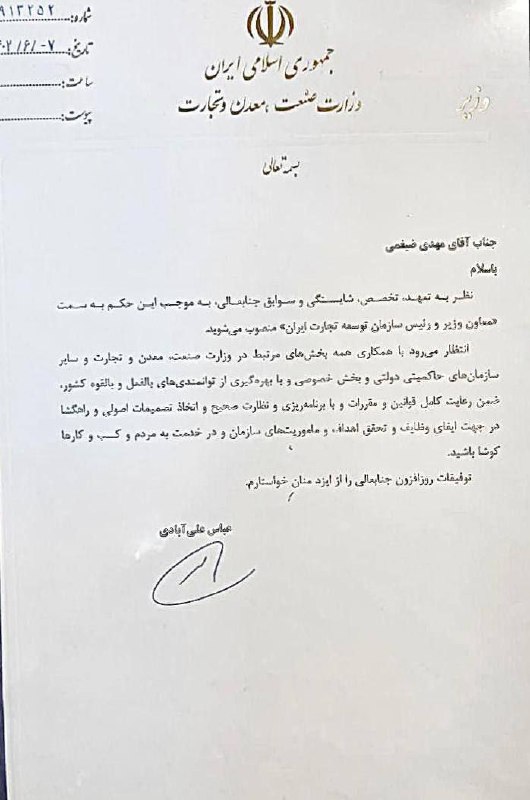 شماره: ۹۱۳۲۵۲
تاریخ: ۰۲/۶/۰۷
ساعت:
پیوست:
جمهوری اسلامی ایران
وزارت صنعت، معدن و تجارت
وزیر
بسمه تعالی
جناب آقای مهدی ضیغمی
باسلام
نظر به تعهد، تخصص، شایستگی و سوابق جنابعالی، به موجب این حکم به سمت
«معاون وزیر و رئیس سازمان توسعه تجارت ایران» منصوب می‌شوید.
انتظار می‌رود با همکاری همه بخش‌های مرتبط در وزارت صنعت، معدن و تجارت و سایر
سازمان‌های حاکمیتی دولتی و بخش خصوصی و با بهره‌گیری از توانمندی‌های بالفعل و بالقوه کشور،
ضمن رعایت کامل قوانین و مقررات و با برنامه‌ریزی و نظارت صحیح و اتخاذ تصمیمات اصولی و راهگشا
در جهت ایفای وظایف و تحقق اهداف و ماموریت‌های سازمان و در خدمت به مردم و کسب و کارها
کوشا باشید.
توفیقات روزافزون جنابعالی را از ایزد منان خواستارم.
عباس علی‌آبادی